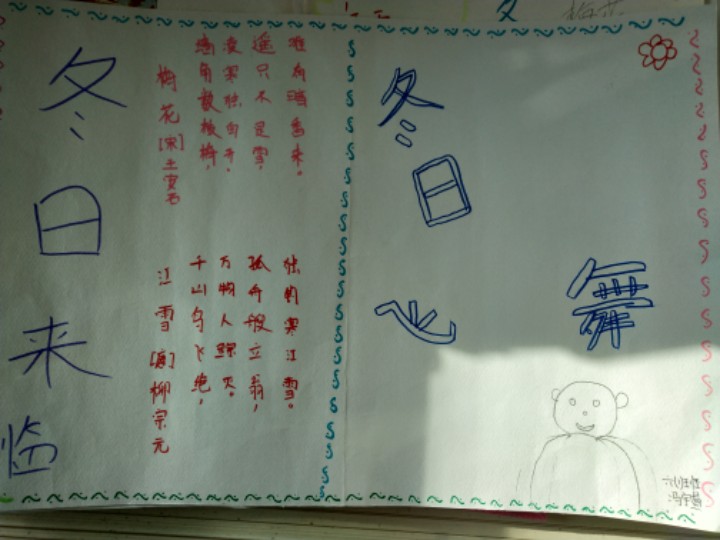 冬日来临
梅花[宋]王安石
墙角数枝梅，
凌寒独自开，
遥只不是雪，
有
香来。
江雪[唐]柳宗元
千山鸟飞绝，
万物人踪灭。
孤舟般立翁，
独钓寒江雪。
冬日心舞